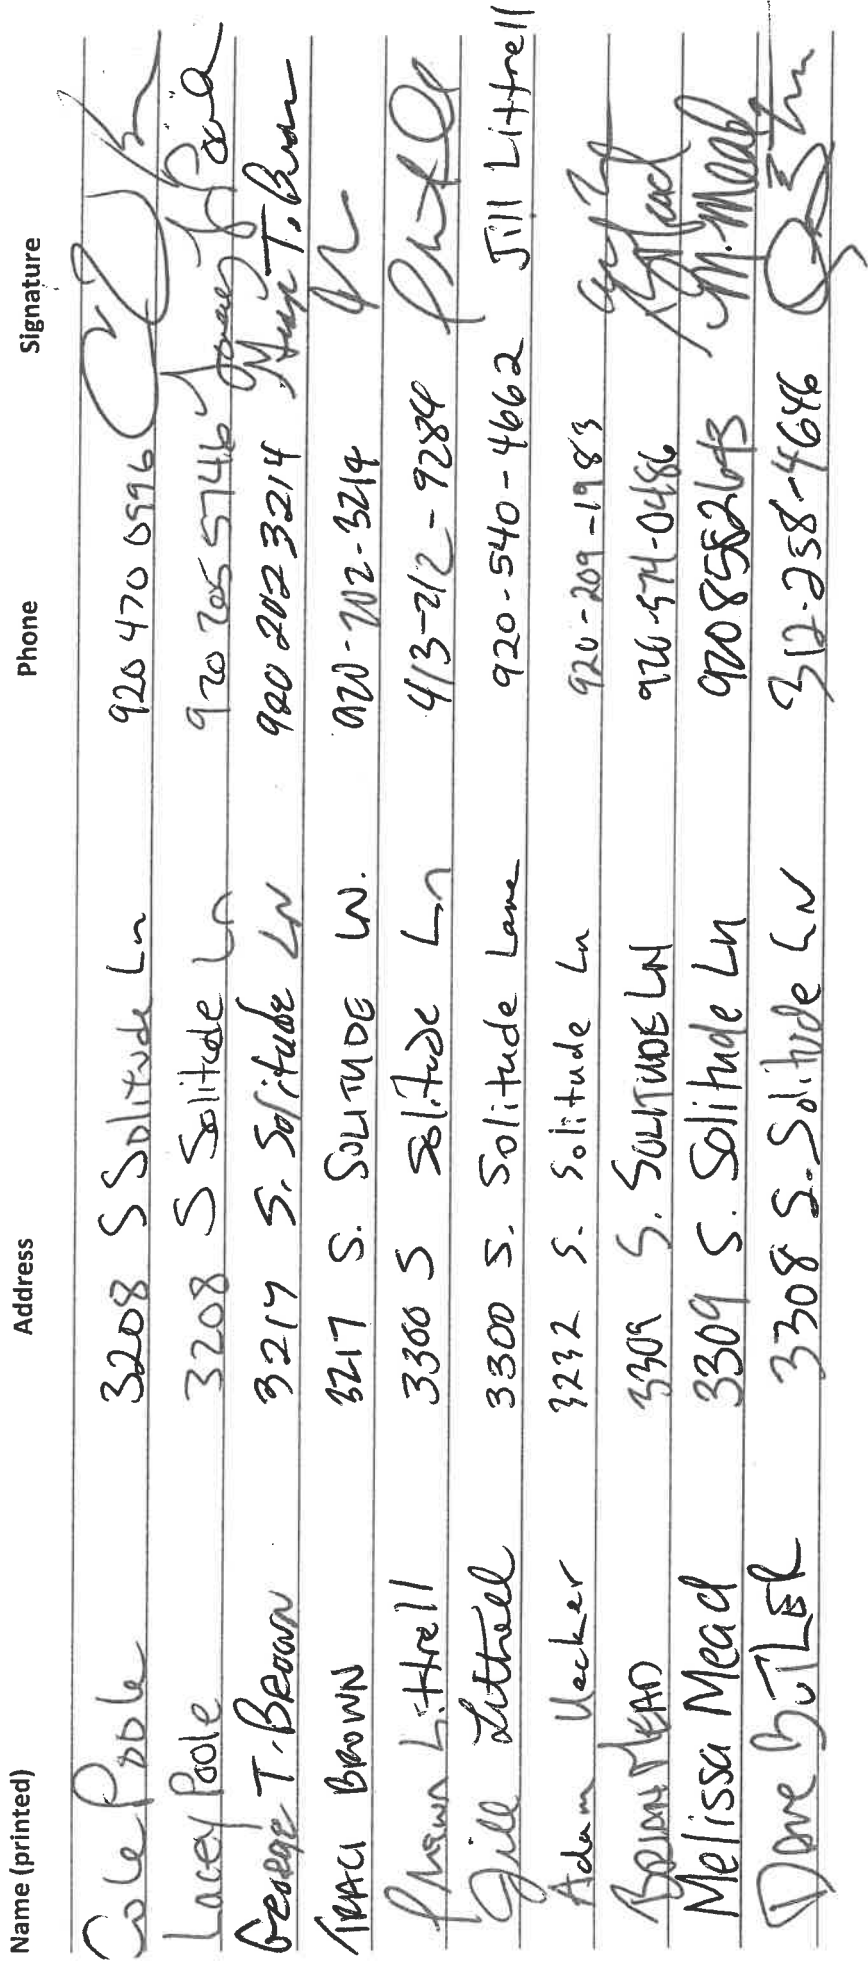 Name (printed) Address Phone Signature
Cole Poole 3208 S Solitude Ln 920 470 0996
Lacey Poole 3208 S Solitude Ln 920 205 5746 Lacey Poole
George T. Brown 3217 S. Solitude LN 920 202 3214 T. Brown
TRACI BROWN 3217 S. SOLITUDE LN. 920-202-3214
Shawn Littrell 3300 S Solitude Ln 413-212-9284
Jill Littrell 3300 S. Solitude Lane 920-540-4662 Jill Littrell
Adam Uecker 3232 S. Solitude Ln 920-209-1983
BRIAN MEAD 3309 S. SOLITUDE LN 920-574-0486
Melissa Mead 3309 S. Solitude Ln 920 858 2643 M. Mead
Dave BUTLER 3308 S. Solitude LN 312-258-4646